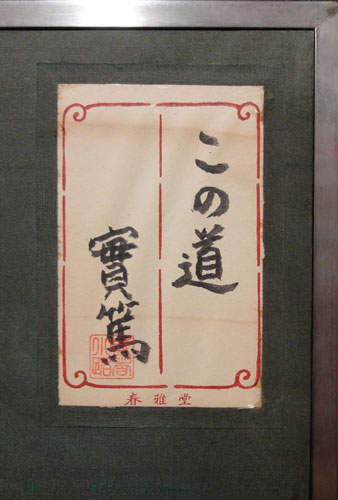 この道
實篤
春雅堂